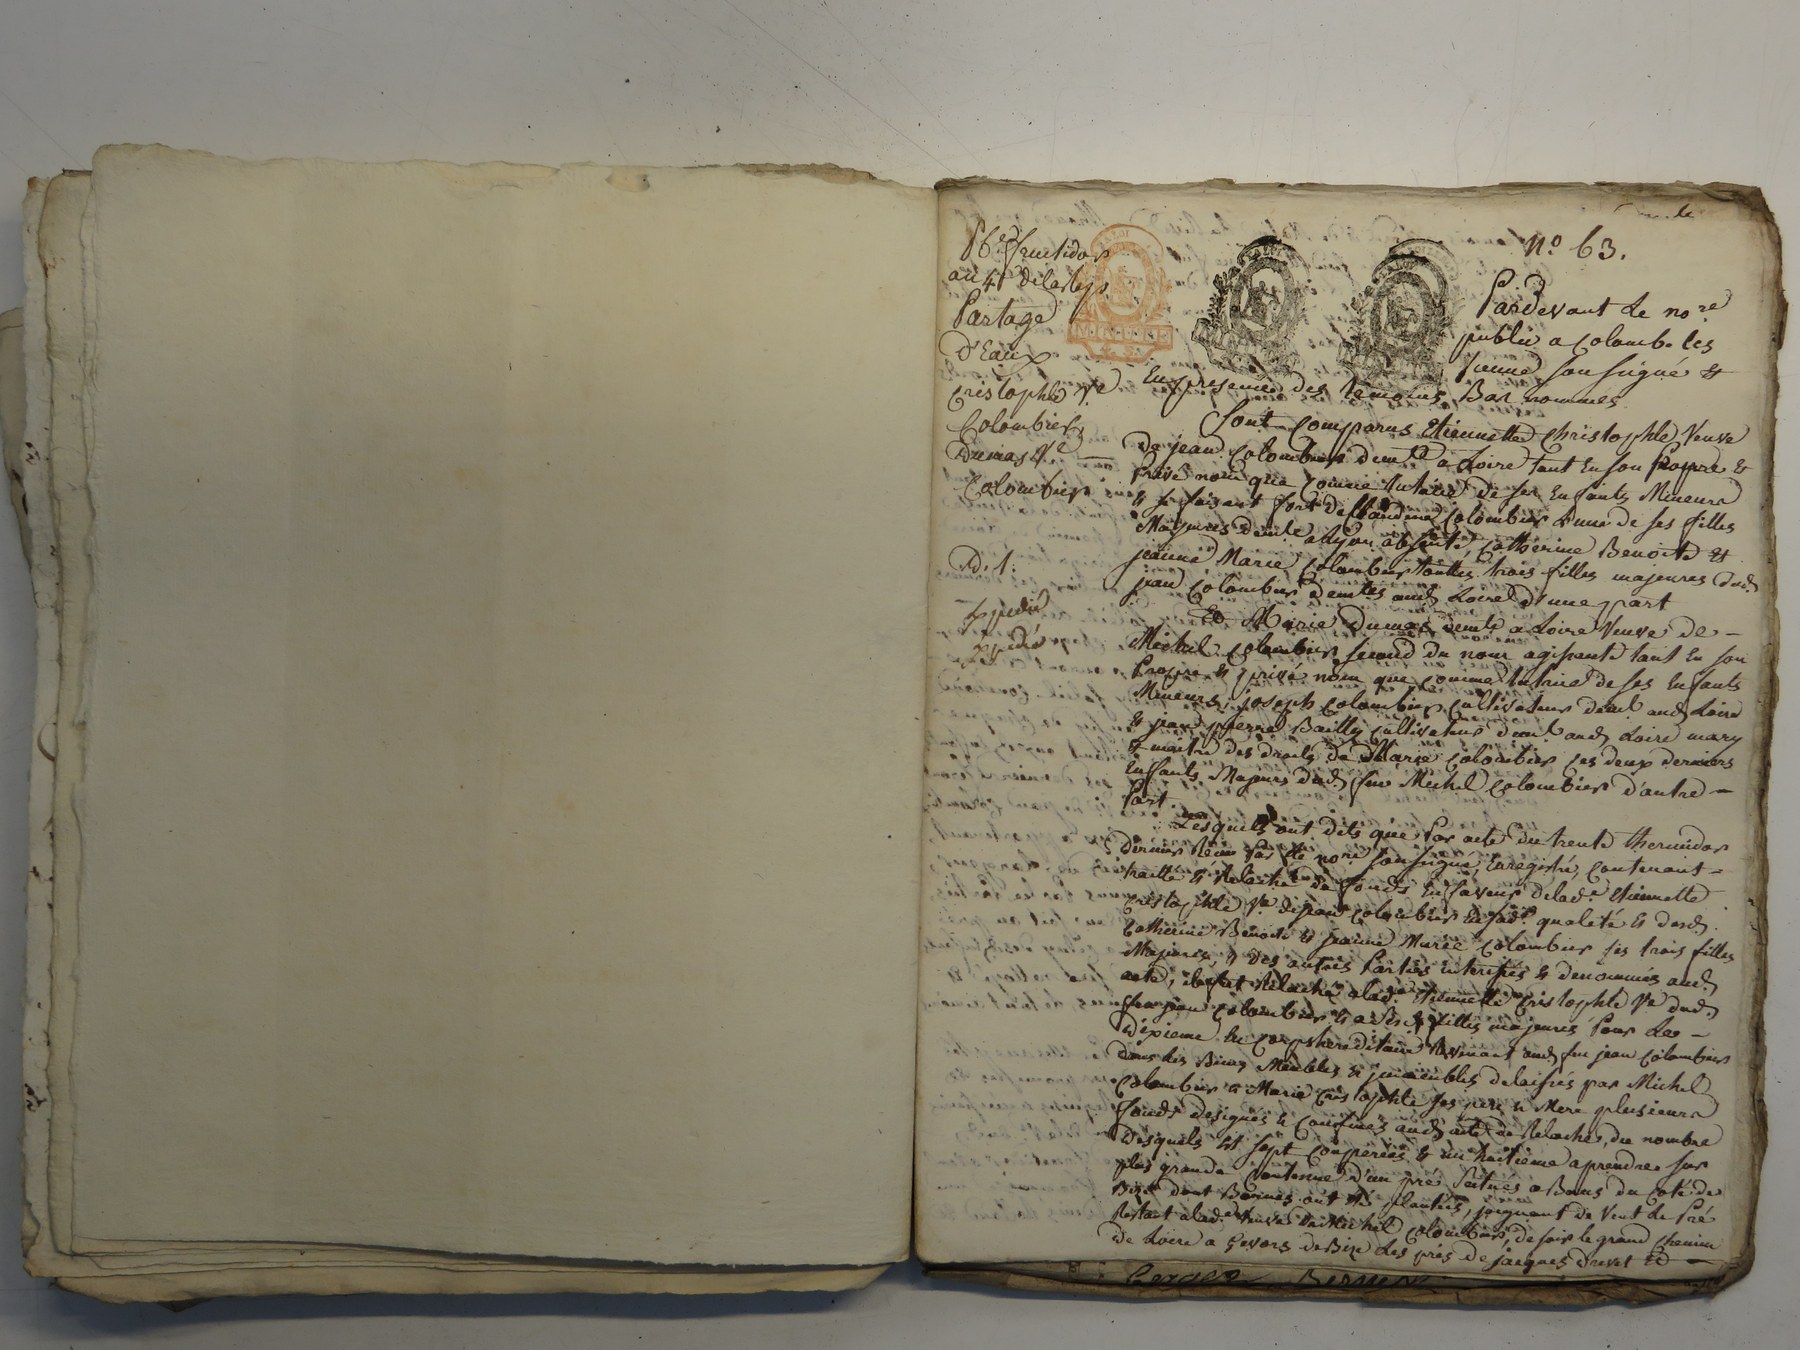 fructidor
an 4e de la Rep
Partage
d'Eaux
Cristophle Ve
Colombier,
Dumas Ve
Colombier
D. 1.
Expedié
Expedié
No 63.
Pardevant le nore
public a Colombe les
Vienne soussigné &
En presence des temoins Bas nommés
Sont comparus Etiennette Christophle Veuve
de jean Colombier demte a Loire tant En son Propre &
Privé nom que Comme tutrice de ses Enfants Mineurs
& se faisant fort de Claudine Colombier l'une de ses filles
Majeures demte a Lyon absente, Catherine Benoite &
jeanne Marie Colombier touttes trois filles majeures dud.
jean Colombier demtes aud. Loire d'une part
Et Marie Dumas demte a Loire Veuve de
Michel Colombier second du nom agissante tant En son
Propre & privé nom que comme tutrice de ses Enfants
Mineurs, joseph Colombier Cultivateur demt aud. Loire
& jean pierre Bailly Cultivateur demt aud. Loire mary
& maitre des droits de Marie Colombier ces deux derniers
Enfants Majeurs dud. feu Michel Colombier d'autre
Part.
Lesquels ont dits que Par acte du trente thermidor
dernier Recu Par le nore soussigné, Enregistré, Contenant
traitté & Relache de fonds En faveur de lad. Etiennette
Cristophle Ve de jean Colombier En sad. qualité & desd.
Catherine Benoite & jeanne Marie Colombier ses trois filles
Majeures, & des autres Parties interessées & denommées aud.
acte, il fut Relaché a lad. Etiennette Cristophle Ve dud.
feu jean Colombier & a ses filles majeures Pour Le
Dixieme En Corps hereditaire Revenant aud. feu jean Colombier
dans les Biens Meubles & immeubles delaissés par Michel
Colombier & Marie Cristophle ses pere & Mere plusieurs
fonds designés & Confinés aud. acte de Relache, du nombre
desquels Est sept Couperées & un huitieme a prendre sur
plus grande Contenue d'un pré situés a Bans du Coté de
Bize dont Bornes ont été plantées, joignant de Vent le Pré
Restant a lad. Veuve de Michel Colombier, de soir le grand Chemin
de Loire a Givors de Bize les prés de jacques Drevet Et